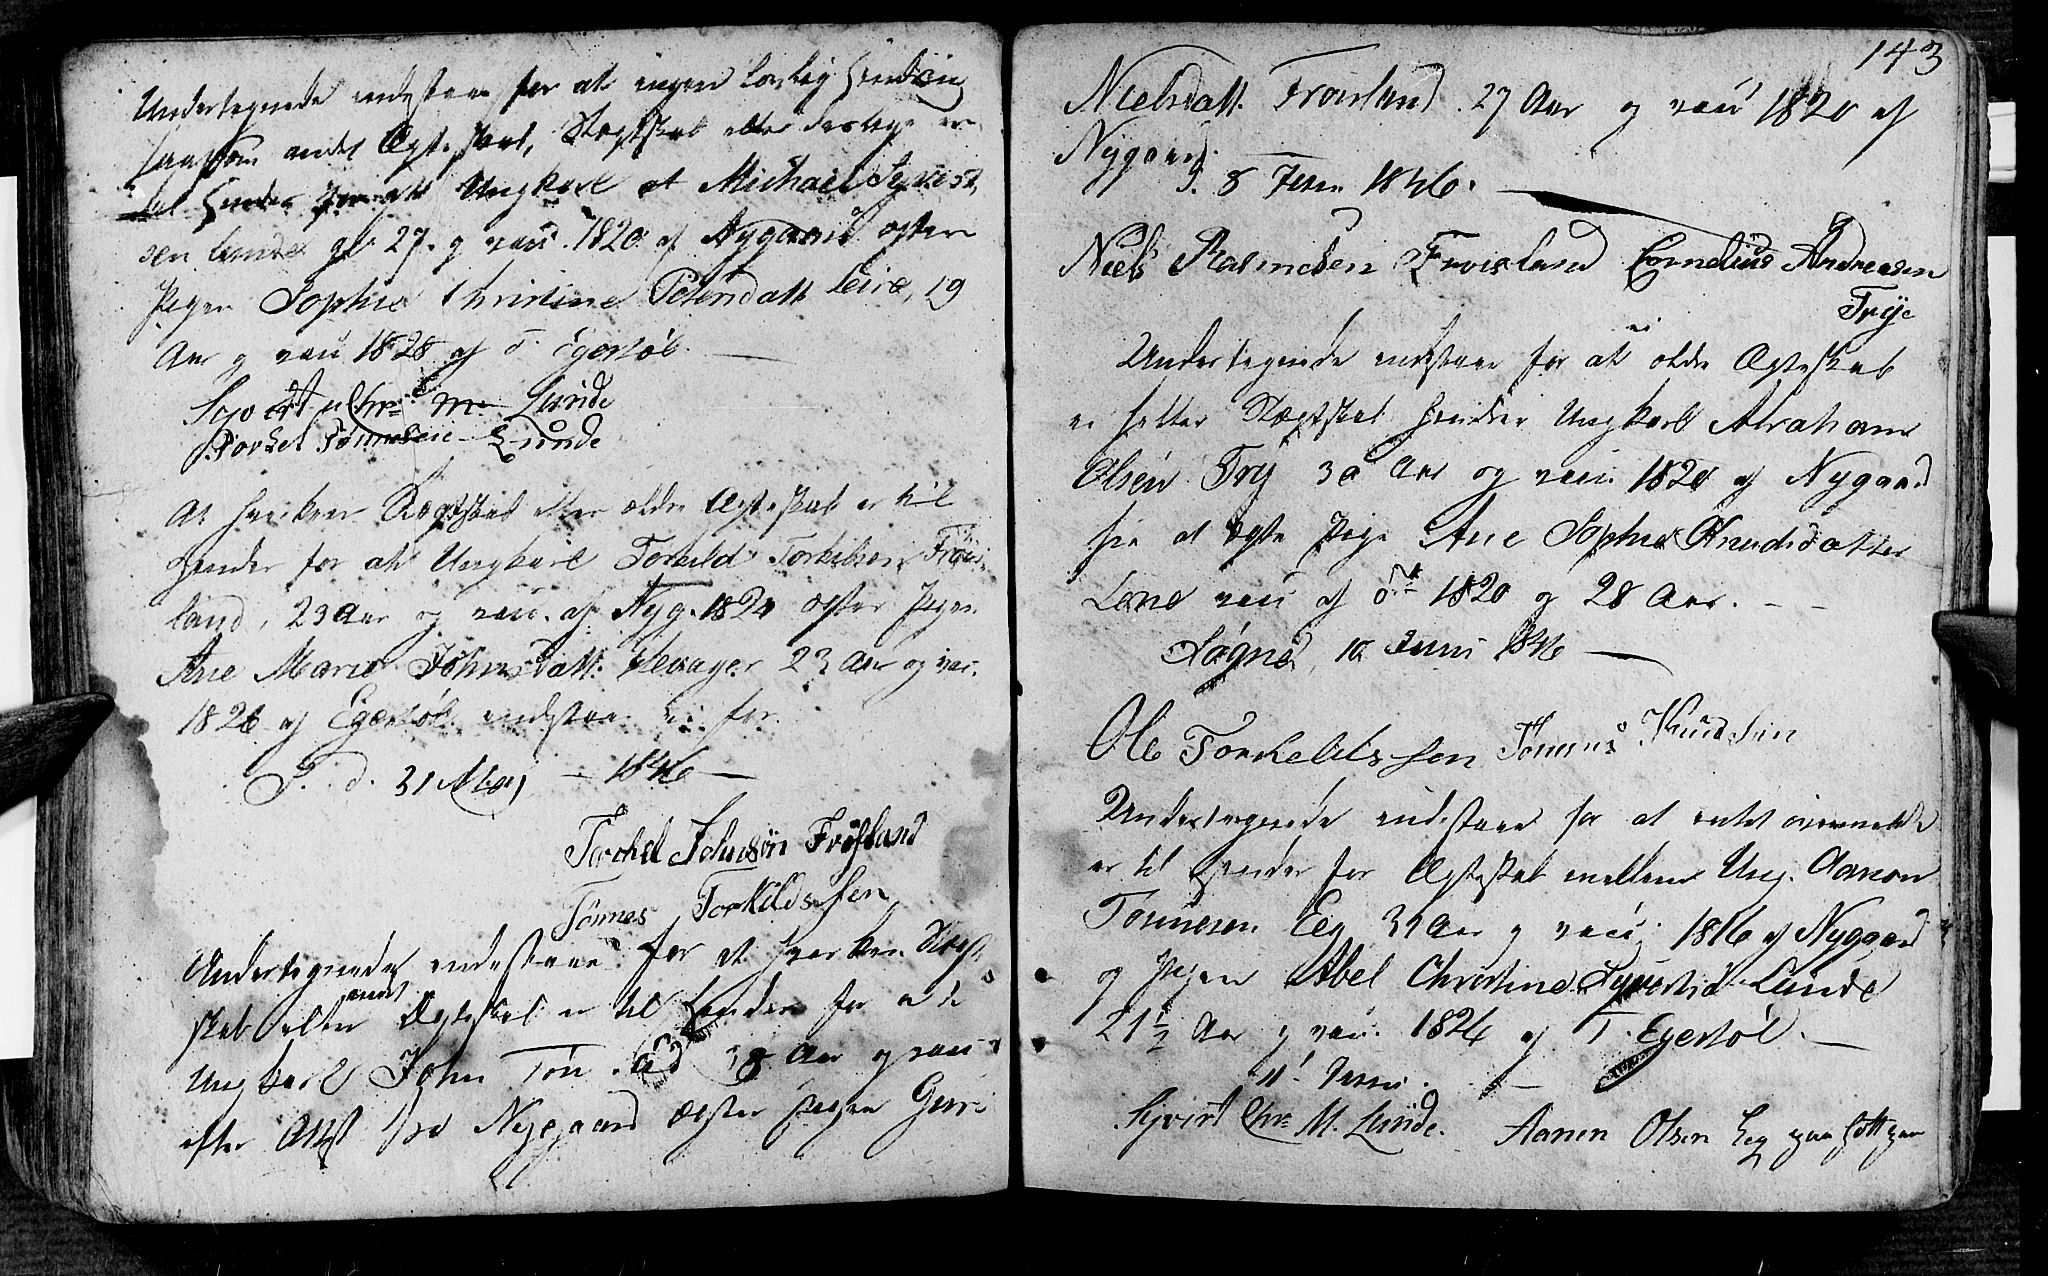 Undertegnede indestaae for at ingen lovlig Hindring
saasom andet Ægteskab, Slægtskab eller deslige er
til Hinder for at Ungkarl Michael Syvert
sen Lunde gl 27. og vacc. 1820 af Nygaard ægter
Pigen Sophie Christine Petersdatt Leire, 19
Aar og vacc 1828 af d. Egestøl.
Syvert Chr. M. Lunde
Torkel Tønnesen Lunde
At hverken Slægtskab eller ældre Ægteskab er til
Hinder for at Ungkarl Torkild Torkelsen Frøis-
land, 23 Aar og vacc. af Nyg. 1824 ægter Pigen
Ane Marie Johnsdatt. 23 Aar og vac.
1826 af Egestøl indestaae vi for.
S. d. 31 May 1846
Torkel Johnsøn Frøisland
Tønnes Torkildssen
Undertegnede indestaae for at hverken Slægt
skab eller andet Ægteskab er til Hinder for at
Ungkarl John Tøn 38 Aar og vacc
efter Attest fra Nygaard ægter Pigen Guri
143
Nielsdatt. Frøisland 27 Aar og vacc 1820 af
Nygaard.
S. 8 Juni 1846.
Niels Rasmusen Frøisland Cornelius Andreasen
Trye
Undertegnede indestaae for at ei ældre Ægteskab
ei heller Slægtskab hindrer Ungkarl Abraham
Olsen Try 30 Aar og vacc. 1820 af Nygaard
fra at ægte Pige Ane Sophie Knudsdatter
Lene vacc af do 1820 og 28 Aar.
Søgne, 10 Juni 1846
Ole Torkeldssen Tønnes Knudsen
Undertegnede indestaae for at intet
er til Hinder for Ægteskab mellem Ung. Aanon
Tønnesen Eeg 31 Aar og vacc. 1816 af Nygaard
og Pigen Abel Christine Syvertsd. Lunde
21½ Aar og vacc. 1826 af T. Egestøl.
11. Juni.
Syvert Chr M. Lunde. Aanen Olsen Eeg